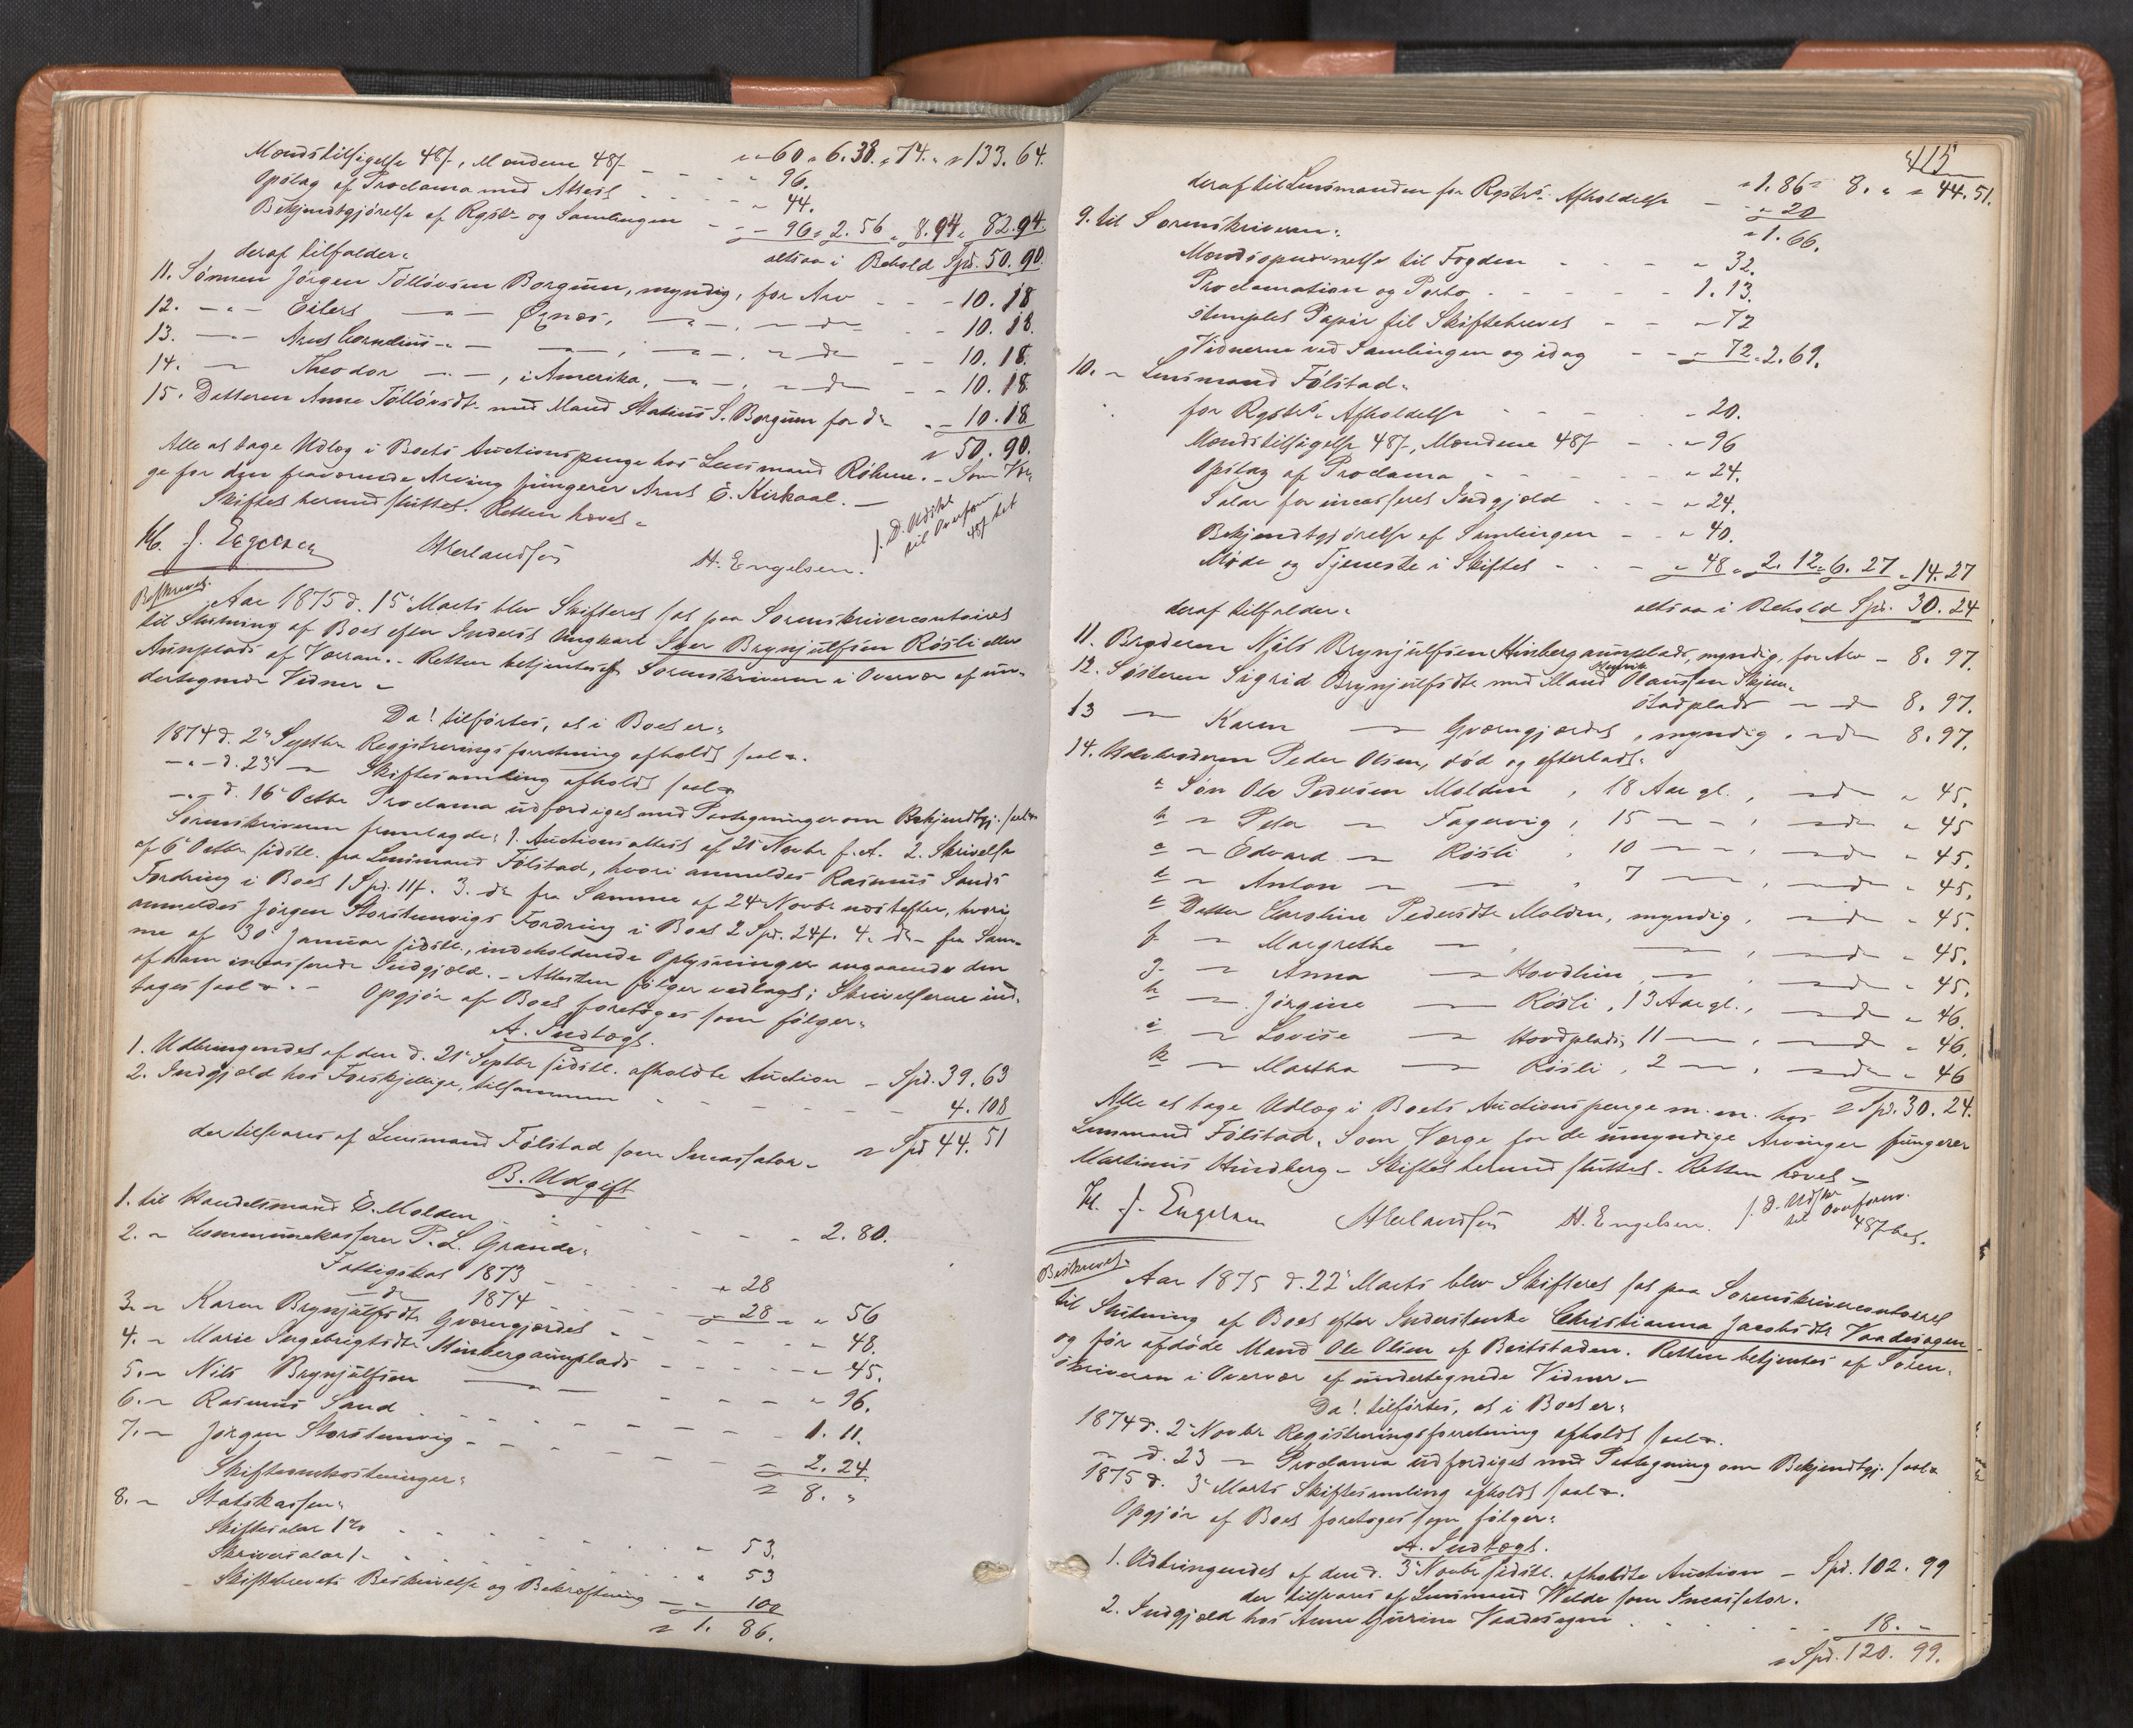 Mændstilsigelse 48/-, Mændene 48/- - - " 96. " 60 " 6.38. " 74. " " 133.64.
Opslag af Proclama med Attest - - - " 44.
Bekjendtgjørelse af Rgstr. og Samlingen - - " 96 " 2.56 " 8.94 " 82.94.
altsaa i Behold Spd. 50.90.
deraf tilfalder:
11. Sønnen Jørgen Tølløvsen Borgum, myndig, for Arv - - - 10.18
12. - " - Eilert - " - Øxnæs, - " -, " do - - 10.18.
13. - " - Arnt Cornelius - " - - " -, - " -, " do - - 10.18.
14. - " - Theodor - " -, i Amerika, - " -, " do - - 10.18
15. Datteren Anne Tølløvsdtr med Mand Statius S. Borgum for do - - 10.18
" 50.90.
Alle at tage Udlæg i Boets Auctionspenge hos Lensmand Røhme. - Som Vær-
ge for den fraværende Arving fungerer Arnt E. Kirkaal. -
Skiftet hermed sluttet. Retten hævet.
J. Engelsen HErlandsen H. Engelsen.
f. D. Udskr.
til Overform
48/- bet
Beskrevet.
Aar 1875 d. 15 Marts blev Skifteret sat paa Sorenskrivercontoiret
til Slutning af Boet efter Inderøs Ungkarl Iver Brynjulfsen Røsli eller
Aunplads af Værran. - Retten betjentes af Sorenskriveren i Overvær af un-
dertegnede Vidner -
Da! tilførtes, at i Boet er:
1874 d. 2 Septbr Registreringsforretning afholdt saal.
- " - d. 23 - " - Skiftesamling afholdt saal.
- " - d. 16 Octbr Proclama udfærdiget med Paategninger om Bekjendtgj. saal.
Sorenskriveren fremlagde: 1. Auctionsattest af 21 Novbr f. A. 2. Skrivelse
af 6 Octbr sidstl. fra Lensmand Følstad, hvori anmeldes Rasmus Sands
Fordring i Boet 1 Spd. 11/-. 3. do fra Samme af 24 Novbr næstefter, hvori
anmeldes Jørgen Storstenvigs Fordring i Boet 2 Spd. 24/-. 4. do - fra Sam-
me af 30 Januar sidstl., indeholdende Oplysninger angaaende den
af ham incasserede Indgjæld. - Attesten følger vedlagt; Skrivelserne ind-
tages saal. - Opgjør af Boet foretoges som følger:
A. Indtægt.
1. Udbringendet af den d. 21 Septbr sidstl. afholdte Auction - Spd. 39.63
2. Indgjæld hos Forskjellige, tilsammen - - - - - - 4.108
der tilsvares af Lensmand Følstad som Incassator - " Spd 44.51
B. Udgift
1. til Handelsmand E. Molden - - - - - 2.80.
2. " Communekasserer P. L. Grande:
Fattigskat 1873 - - - - " 28
do 1874 - - - - " 28 " " 56
3. " Karen Brynjulfsdtr Gværngjærdet - - - - " 48.
4. " Marie Ingebrigtsdtr Hinbergaunplads - - - - " 45.
5. " Nils Brynjulfsen - " - - - - " 96.
6. " Rasmus Sand - - - - - 1.11.
7. " Jørgen Storstenvig - - - - - " 2.24
" 8. "
Skifteomkostninger:
8. " Statskassen:
Skiftesalar 1% - - - - " 53.
Skriversalar - - - - " 53
Skiftebrevets Beskrivelse og Bekræftning - " 100
" 1. 86.
415
" 1.86 " 8. " " 44.51.
deraf til Lensmanden for Rgstrs. Afholdelse - - " 20
" 1.66.
9. til Sorenskriveren:
Mændsopnævnelse til Fogden - - - " 32.
Proclamation og Porto - - - - 1.13.
stemplet Papir til Skiftebrevet - - " 72
Vidnerne ved Samlingen og idag - - " 72. 2.69.
10. " Lensmand Følstad:
for Rgstrs. Afholdelse - - - - " 20.
Mændstilsigelse 48/-, Mændene 48/- - " 96
Opslag af Proclama - - - - " 24.
Salar for incasseret Indgjæld - - - " 24.
Bekjendtgjørelse af Samlingen - - " 40.
Møde og Tjeneste i Skiftet - - - " 48 " 2.12 " 6.27 " 14.27
altsaa i Behold Spd. 30.24
deraf tilfalder:
11. Broderen Njels Brynjulfsen Hinbergaunplads, myndig, for Arv - 8.97.
12. Søsteren Sigrid Brynjulfsdtr med Mand Henrik Olaussen Skjem-
stadplads " do 8.97.
13 - " - Karen - " - Gværngjærdet, myndig, " do 8.97.
14. Halvbroderen Peder Olsen, død og efterladt:
a Søn Ole Pedersen Molden, 18 Aar gl., " do " 45.
b " Peter - " - Fagervig, 15 - " -, " do " 45
c " Edvard - " - Røsli, 10 - " -, " do " 45.
d " Anton - " - - " -, 7 - " -, " do " 45.
e Datter Caroline Pedersdtr Molden, myndig, " do " 45.
f " Margrethe - " - - " -, - " -, " do " 45.
g " Anna - " - Hovdlein, - " -, " do " 45.
h " Jørgine - " - Røsli, 13 Aar gl., " do " 46.
i " Lovise - " - Hovdplads, 11 - " -, " do " 46.
k " Martha - " - Røsli, 2 - " -, " do " 46
" Spd. 30.24.
Alle at tage Udlæg i Boets Auctionspenge m. m. hos
Lensmand Følstad. Som Værge for de umyndige Arvinger fungerer
Martinus Hindberg - Skiftet hermed sluttet. Retten hævet -
J. Engelsen HErlandsen H. Engelsen.
f. D. Udskr.
til Overform.
48/- bet.
Beskrevet.
Aar 1875 d. 22 Marts blev Skifteret sat paa Sorenskrivercontoiret
til Slutning af Boet efter Inderstenke Christianna Jacobsdtr Vaadesagen
og før afdøde Mand Ole Olsen af Beitstaden. Retten betjentes af Soren-
skriveren i Overvær af undertegnede Vidner -
Da! tilførtes, at i Boet er:
1874 d. 2 Novbr Registreringsforretning afholdt saal.
- " - d. 23 - " - Proclama udfærdiget med Paategning om Bekjendtgj. saal.
1875 d. 3 Marts Skiftesamling afholdt saal.
Opgjør af Boet foretoges som følger:
A. Indtægt.
1. Udbringendet af den d. 3 Novbr sidstl. afholdte Auction - Spd. 102.99
der tilsvares af Lensmand Welde som Incassator.
2. Indgjæld hos Anne Gurine Vaadesagen - - - - - 18. "
" Spd. 120.99.